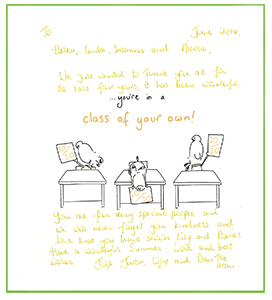 To June 2014.
Helen, Linda, Susanna and
We just wanted to thank you all for
the last few years, it has been wonderful.
...you're in a
class of your own!
You are very special people and
we will never forget your kindness and
love that you have shown Lily and Daniel.
Have a wonderful Summer. Love and best
wishes Lily and Dan